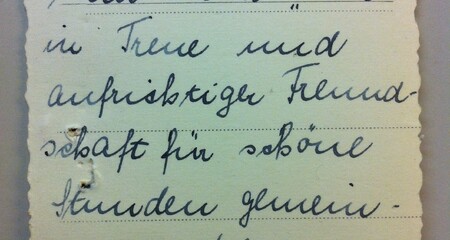 in Treue und
aufrichtiger Freund-
schaft für schöne
Stunden gemein-